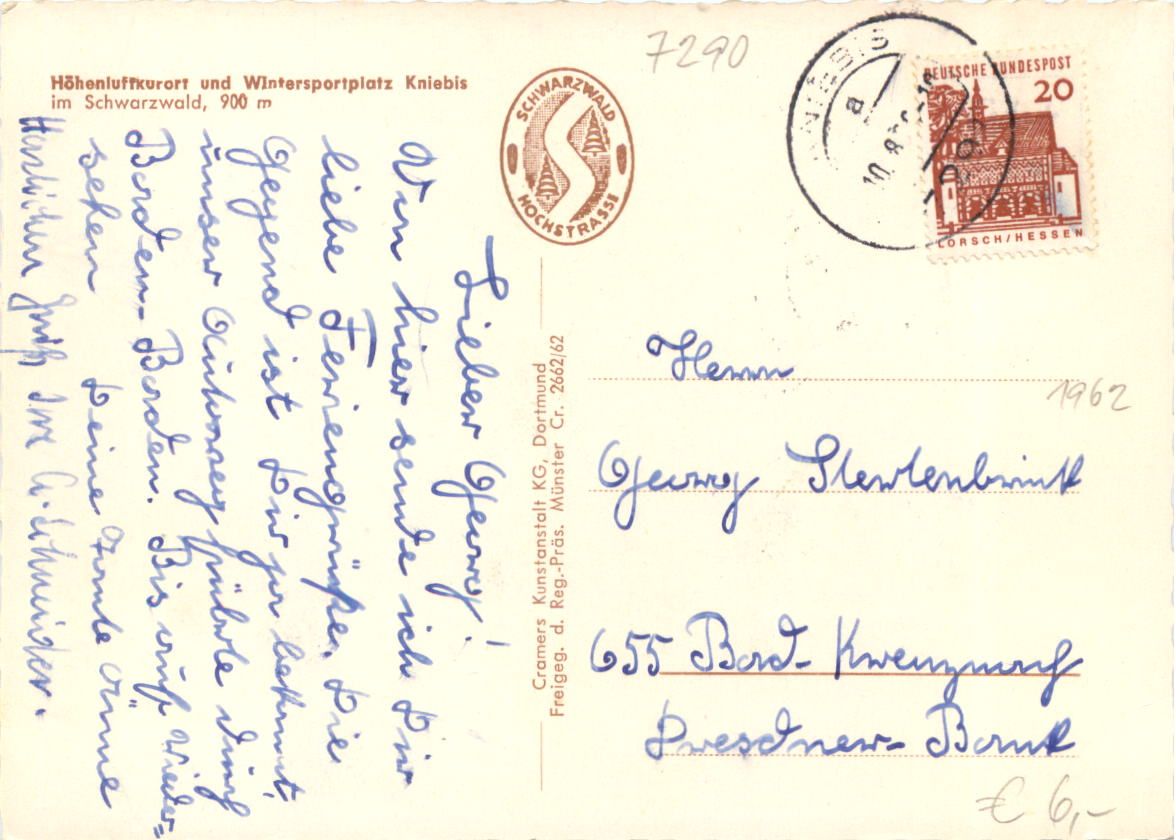 Höhenluftkurort und Wintersportplatz Kniebis
im Schwarzwald, 900 m
SCHWARZWALD
HOCHSTRASSE
7290
KNIEBIS
a
10.8.
DEUTSCHE BUNDESPOST
20
LORSCH/HESSEN
Lieber Georg!
Von hier sende ich Dir
liebe Feriengrüße. Die
Gegend ist Dir ja bekannt.
Unser Ausweg führte durch
Baden-Baden. Bis aufs Wieder=
sehen Deine Tante Änne
Herzlichen Gruß
Cramers Kunstanstalt KG, Dortmund
Freigeg. d. Reg.-Präs. Münster Cr. 2662/62
Herrn
1962
Georg Stertenbrink
655 Bad-Kreuznach
Dresdner-Bank
€ 6,-